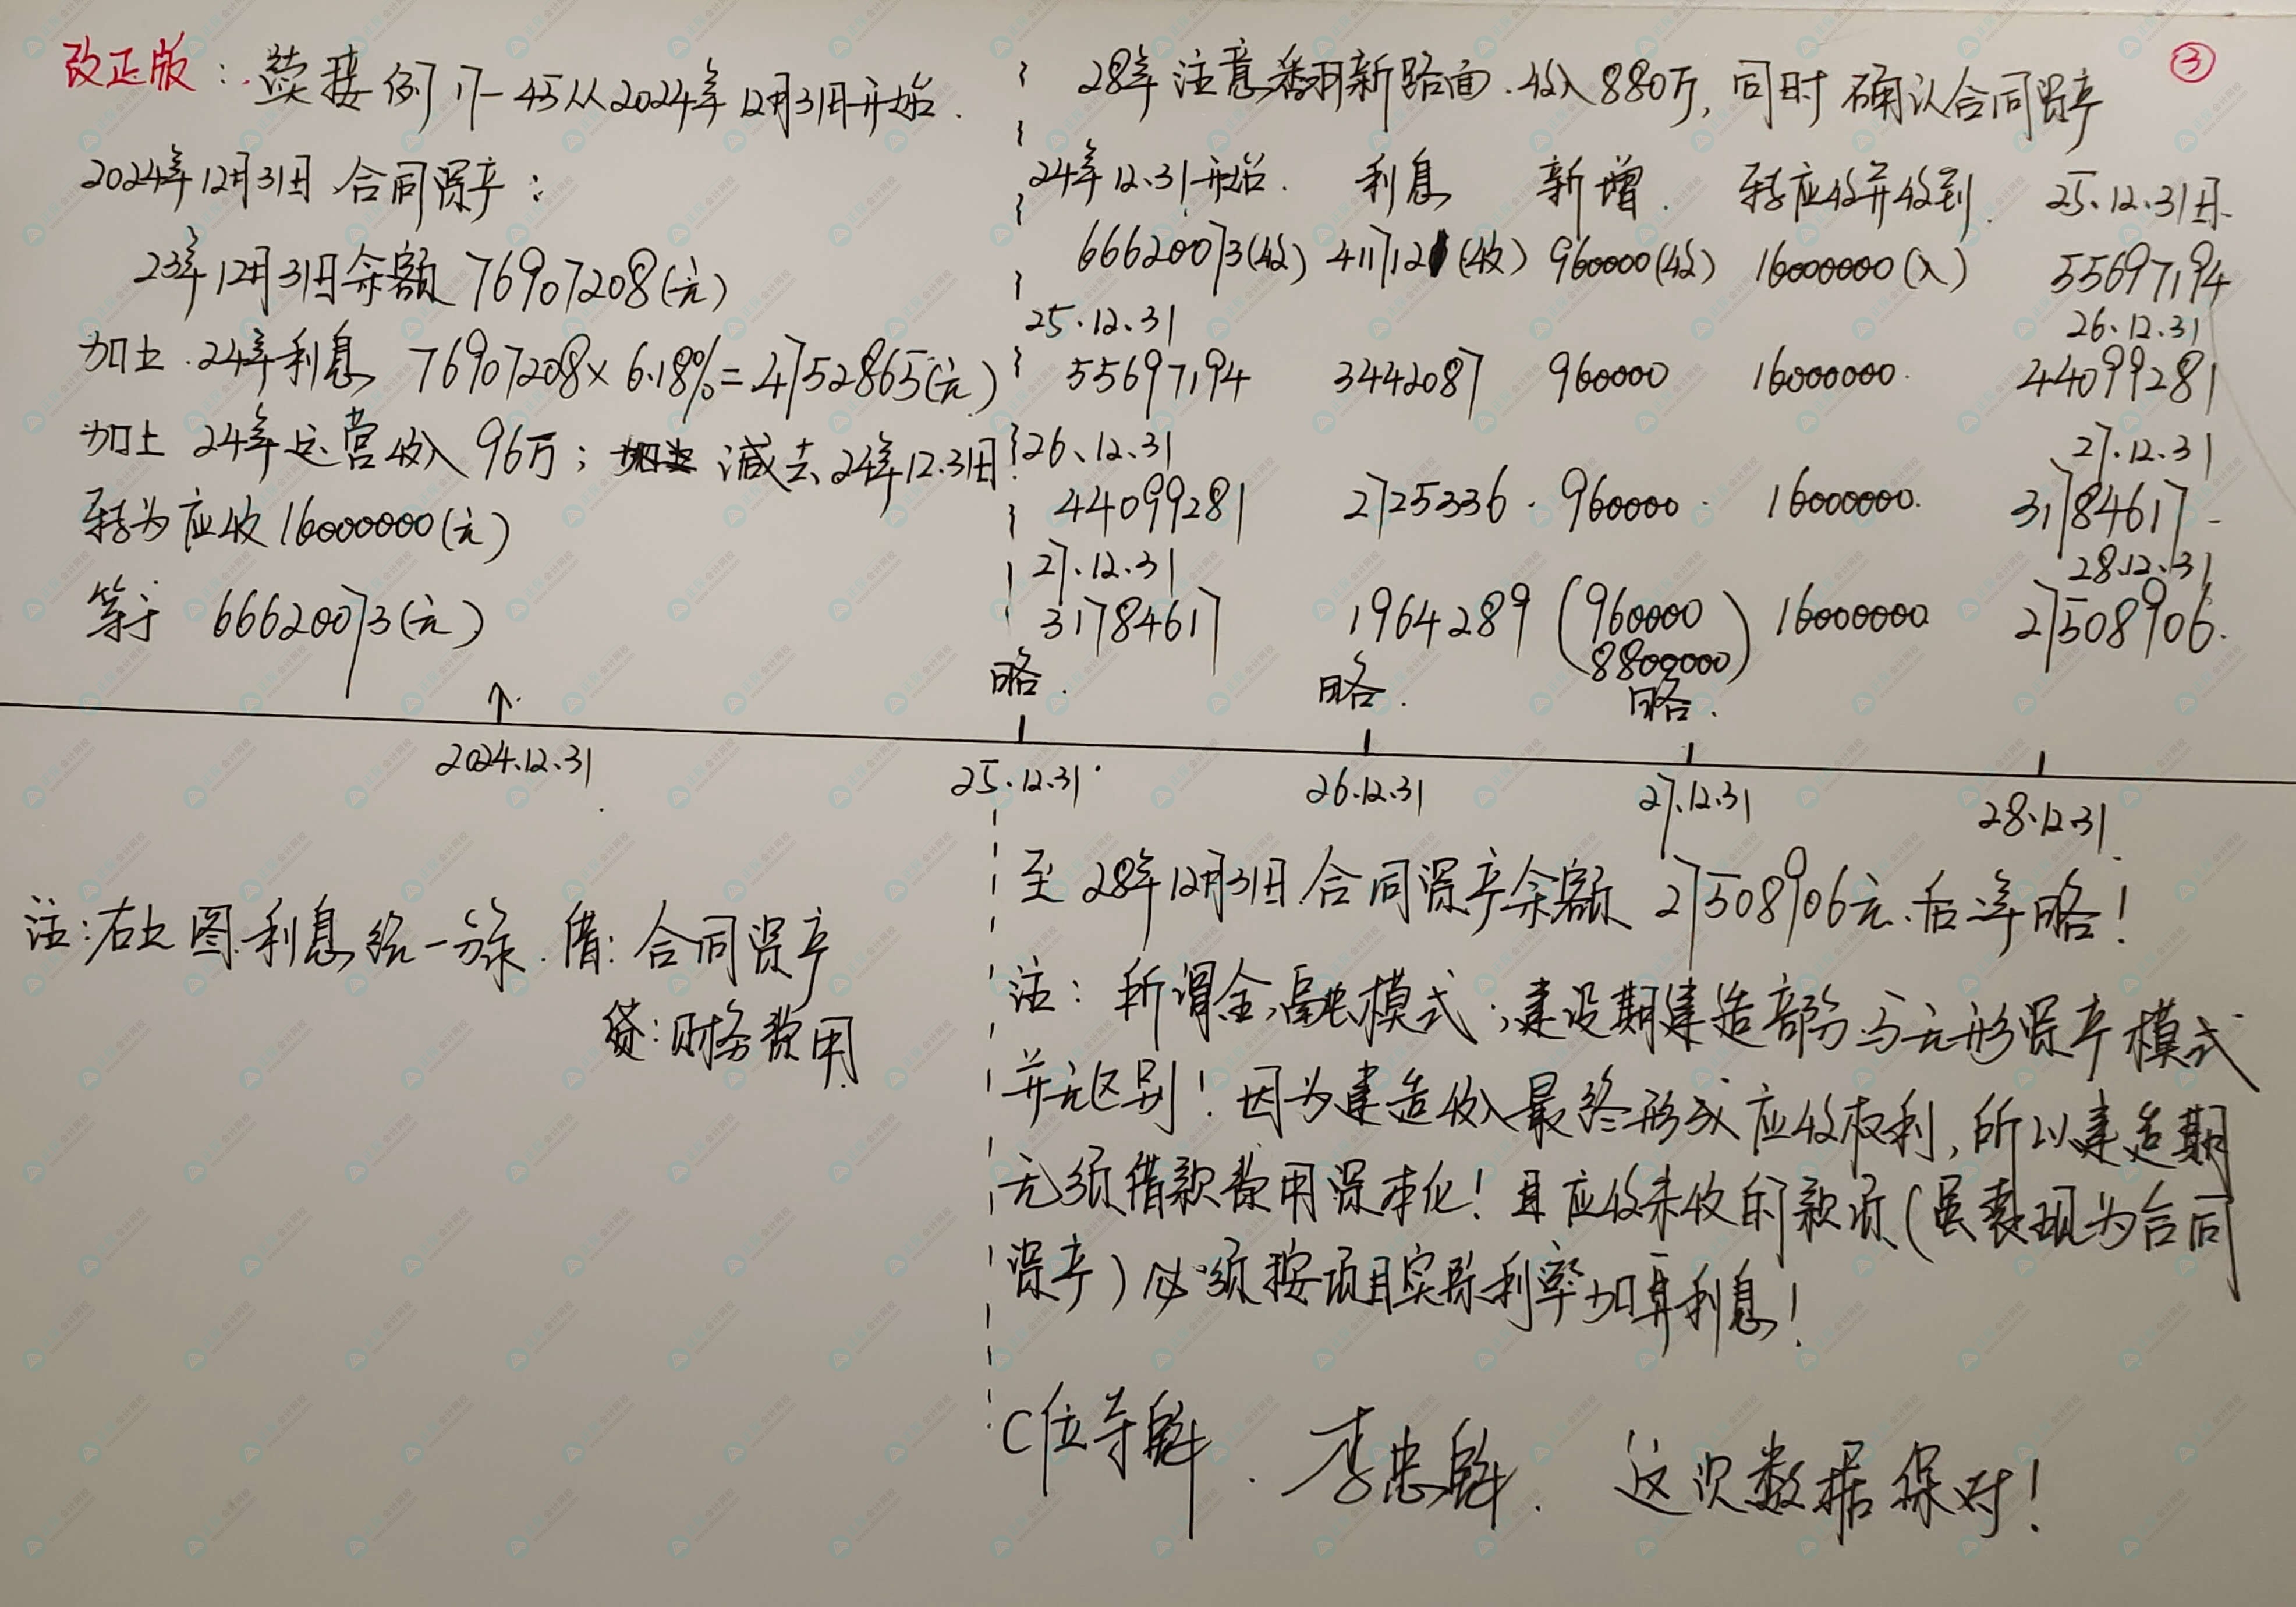 改正版：续接例17-45从2024年12月31日开始.
2024年12月31日合同资产：
23年12月31日余额76907208(元)
加上.24年利息 76907208×6.18%=4752865(元)
加上 24年运营收入96万；减去24年12.31日
转为应收16000000(元)
等于 66620073(元)
③
28年注意翻新路面.收入880万,同时确认合同资产
24年12.31开始. 利息 新增. 转应收并收到. 25.12.31日.
66620073(收) 4117121(收) 960000(收) 16000000(入) 55697194
25.12.31 26.12.31
55697194 3442087 960000 16000000. 44099281
26、12.31 27.12.31
44099281 2725336. 960000. 16000000. 31784617
27.12.31 28.12.31
31784617 1964289 (960000 8800000) 16000000 27508906.
略. 略. 略.
↑
2024.12.31 25.12.31 26.12.31 27.12.31 28.12.31
注:右上图.利息统一分录.借:合同资产
贷:财务费用
至28年12月31日.合同资产余额 27508906元.后年略!
注：所谓金融模式;建设期建造部分与无形资产模式
并无区别!因为建造收入最终形成应收权利,所以建造期
无须借款费用资本化!且应收未收的款项(虽表现为合同
资产)必须按项目实际利率加算利息!
C位夺魁. 李忠魁. 这次数据保对!
正保会计网校